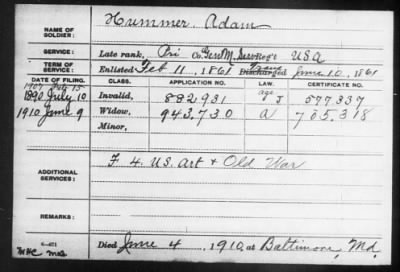 NAME OF SOLDIER: Hummer Adam
SERVICE: Late rank, Pri Co. Genl M. Serv Reg't USA
TERM OF SERVICE: Enlisted Feb 11, 1861 Discharged June 10, 1861
DATE OF FILING. CLASS. APPLICATION NO. LAW. CERTIFICATE NO.
1907 Feb 15
1890 July 10 Invalid, 882,931 age J 577,337
1910 June 9 Widow, 943,730 a 705,318
Minor,
ADDITIONAL SERVICES: F 4. U.S. Art + Old War
REMARKS:
Died June 4, 1910, at Baltimore, Md.